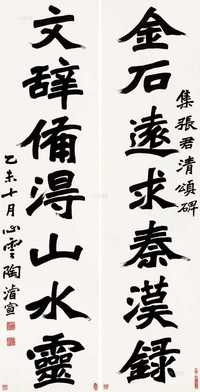 金石遠求秦漢錄
集張君清頌碑
文辭備得山水靈
乙未十月心雲陶濬宣